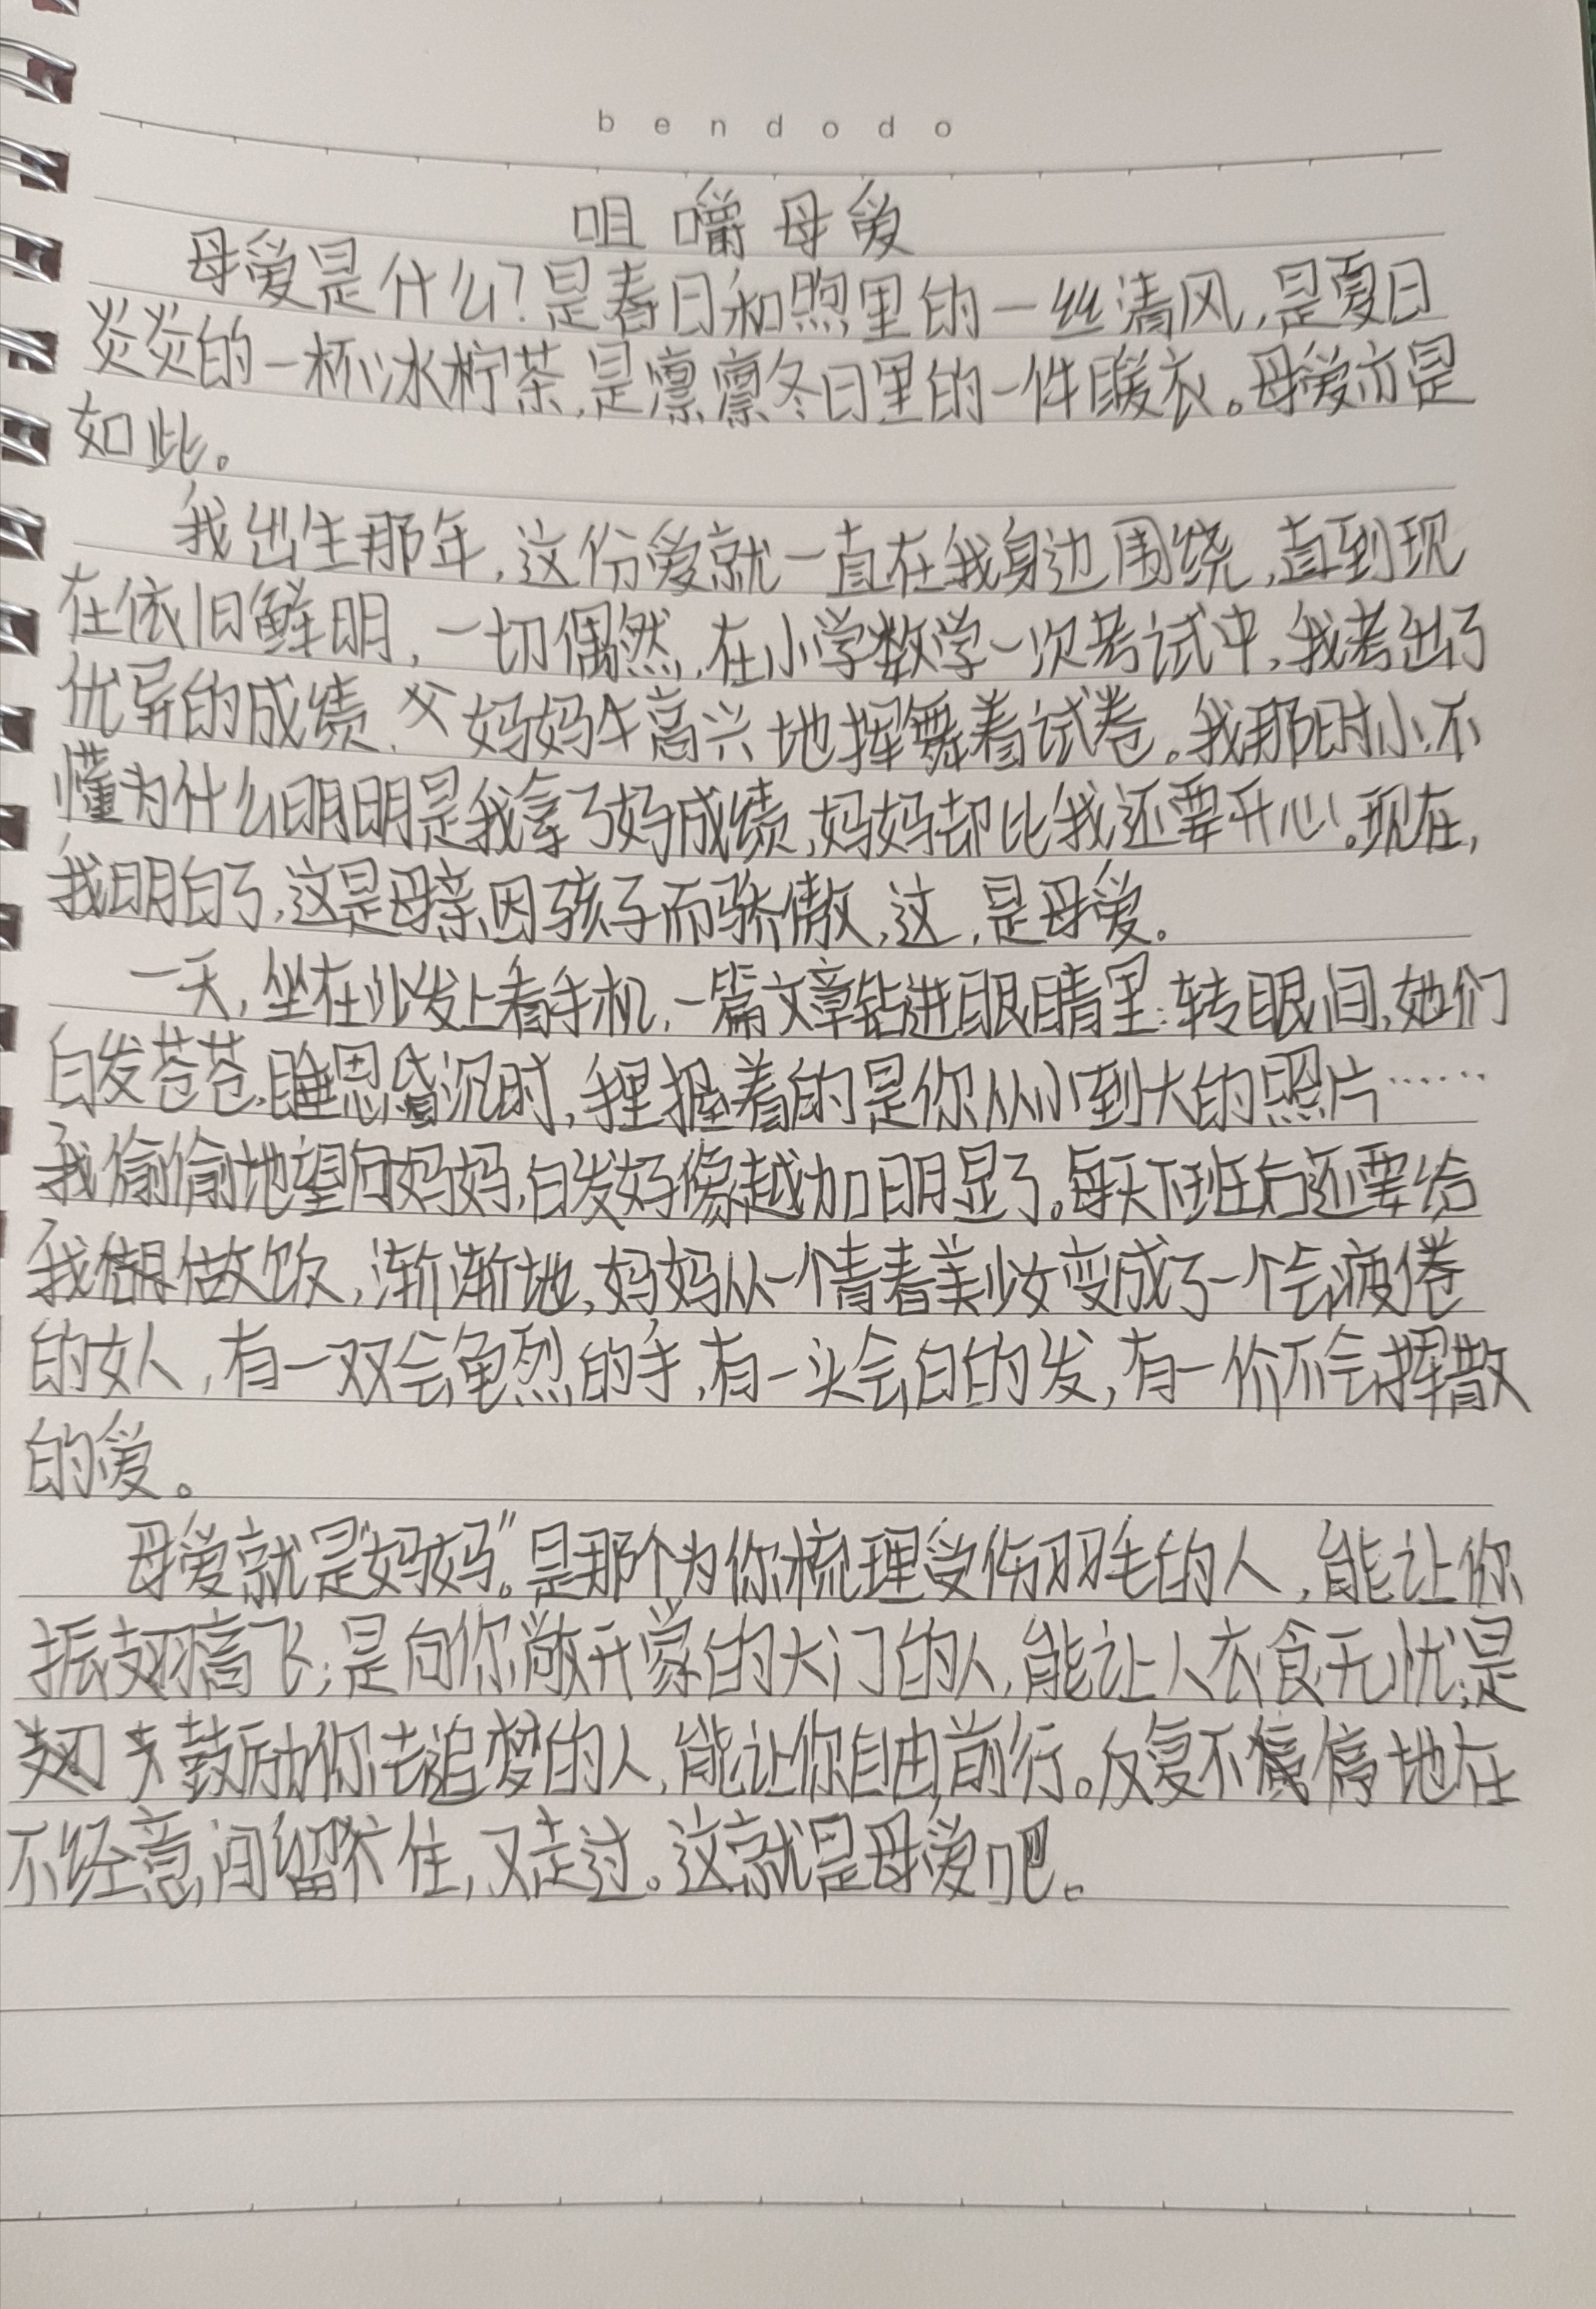 bendodo
咀嚼母爱
母爱是什么?是春日和煦里的一丝清风,是夏日
炎炎的一杯冰柠茶,是凛凛冬日里的一件暖衣。母爱亦是
如此。
我出生那年,这份爱就一直在我身边围绕,直到现
在依旧鲜明,一切偶然,在小学数学一次考试中,我考出了
优异的成绩,妈妈高兴地挥舞着试卷。我那时小,不
懂为什么明明是我拿了好成绩,妈妈却比我还要开心。现在,
我明白了,这是母亲因孩子而骄傲,这,是母爱。
一天,坐在沙发上看手机,一篇文章钻进眼睛里:转眼间,她们
白发苍苍,睡思昏沉时,手里握着的是你从小到大的照片……
我偷偷地望向妈妈,白发好像越加明显了。每天下班后还要给
我做饭,渐渐地,妈妈从一个青春美少女变成了一个会疲倦
的女人,有一双会龟烈的手,有一头会白的发,有一份不会挥散
的爱。
母爱就是“妈妈”。是那个为你梳理受伤羽毛的人,能让你
振翅高飞;是向你敞开家的大门的人,能让人衣食无忧;是
鼓励你去追梦的人,能让你自由前行。反复不停地在
不经意间留住,又走过。这就是母爱吧。